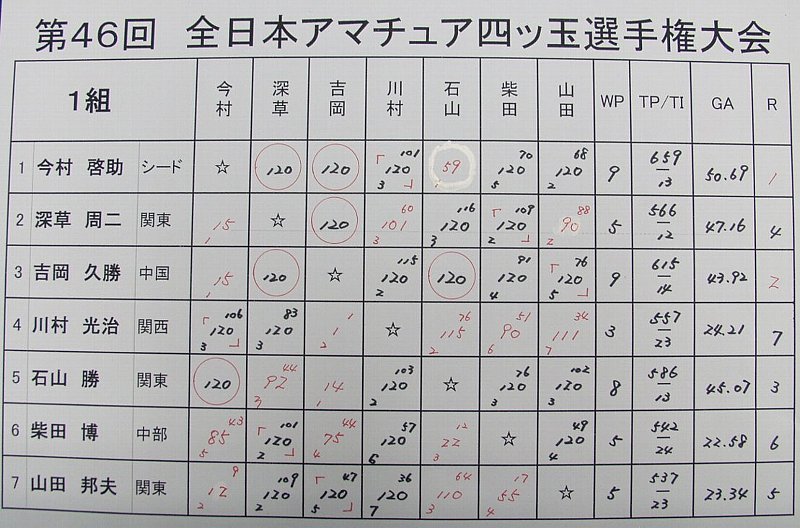 第46回 全日本アマチュア四ッ玉選手権大会
1組 今村 深草 吉岡 川村 石山 柴田 山田 WP TP/TI GA R
1 今村 啓助 シード ☆ 120 120 「 101 120 3 」 59 70 120 5 68 120 2 9 659/13 50.69 1
2 深草 周二 関東 15 1 ☆ 120 60 101 3 116 120 3 「 109 120 2 」 88 90 2 5 566/12 47.16 4
3 吉岡 久勝 中国 15 1 120 ☆ 115 120 2 120 91 120 4 「 76 120 5 」 9 615/14 43.92 2
4 川村 光治 関西 「 106 120 3 」 83 120 3 1 1 2 ☆ 76 115 2 51 90 6 34 111 7 3 557/23 24.21 7
5 石山 勝 関東 120 44 92 3 14 1 103 120 2 ☆ 76 120 3 102 120 3 8 586/13 45.07 3
6 柴田 博 中部 43 85 5 「 101 120 2 」 44 75 4 57 120 6 12 22 3 ☆ 49 120 4 5 542/24 22.58 6
7 山田 邦夫 関東 9 12 2 109 120 2 「 47 120 5 」 36 120 7 64 110 3 17 55 4 ☆ 5 537/23 23.34 5